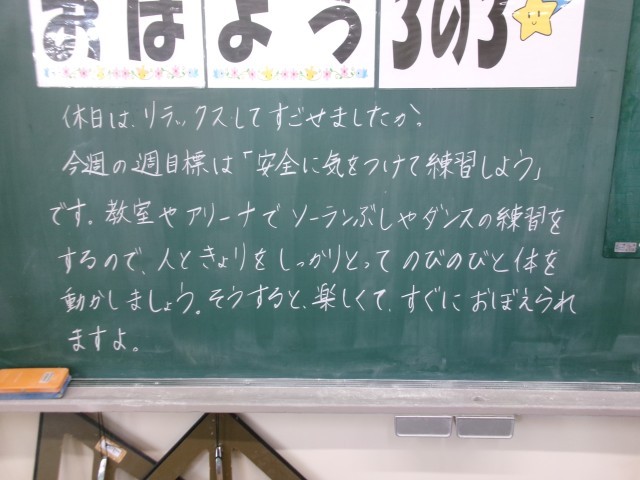 おはよう 3の3
休日は、リラックスしてすごせましたか。
今週の週目標は「安全に気をつけて練習しよう」
です。教室やアリーナでソーランぶしやダンスの練習を
するので、人ときょりをしっかりとってのびのびと体を
動かしましょう。そうすると、楽しくて、すぐにおぼえられ
ますよ。